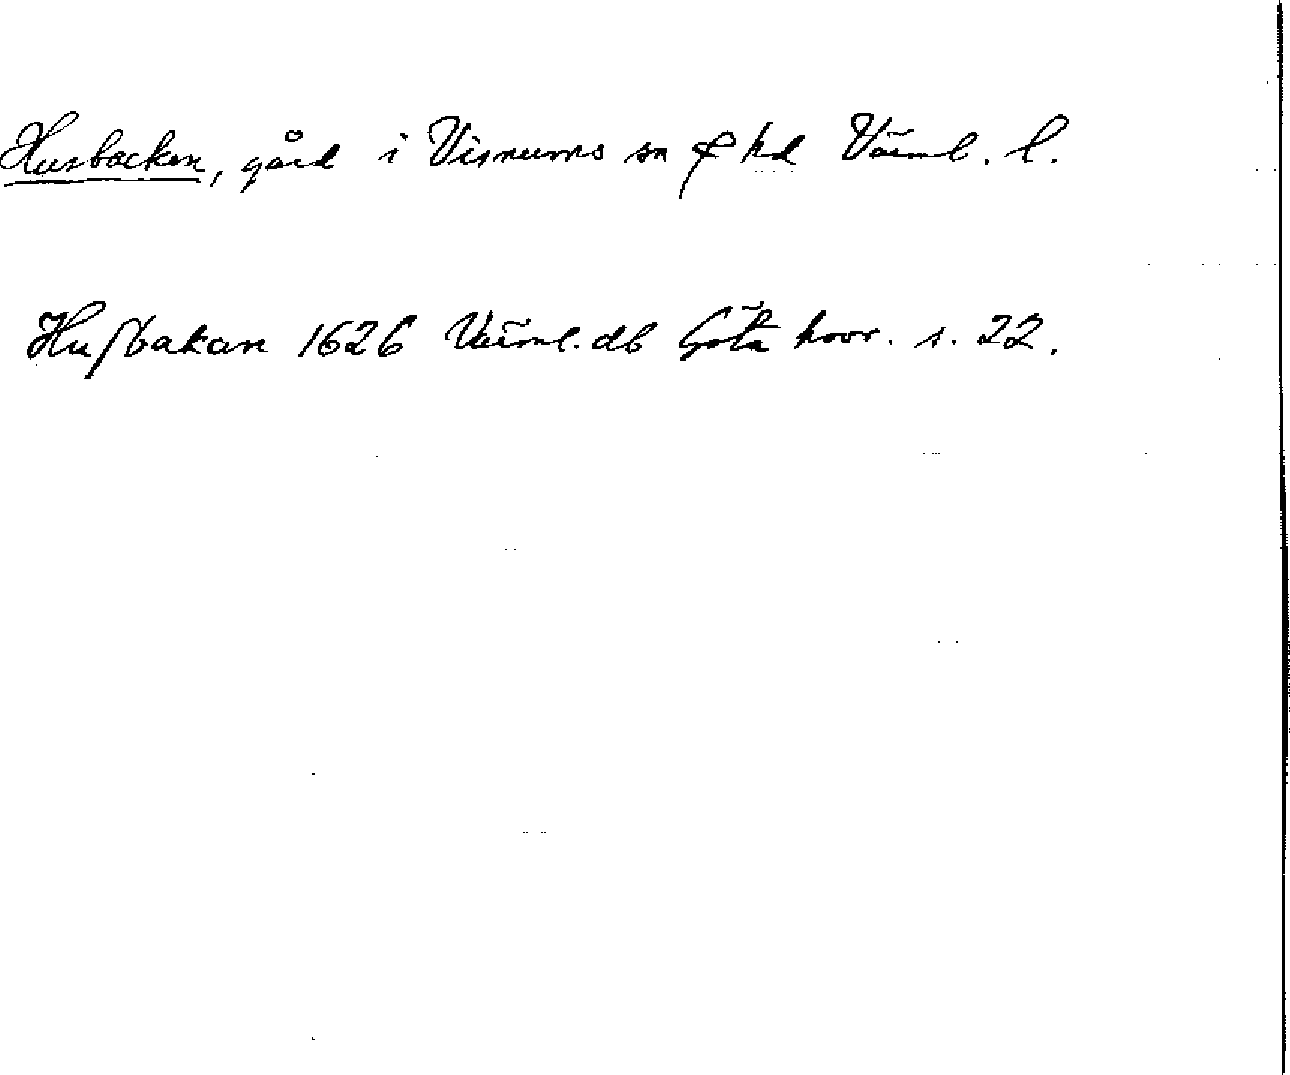 Husbacken, gård i Visnums sn & hd Värml. l.
Huſbakan 1626 Värml. db Göta hovr. s. 22.